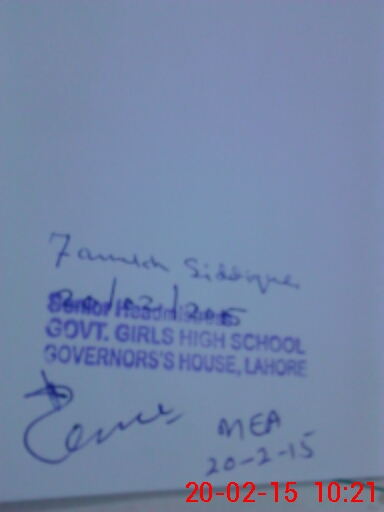 Siddique
20/02/2015
Senior Headmistress
GOVT. GIRLS HIGH SCHOOL
GOVERNORS'S HOUSE, LAHORE
MEA
20-2-15
20-02-15 10:21